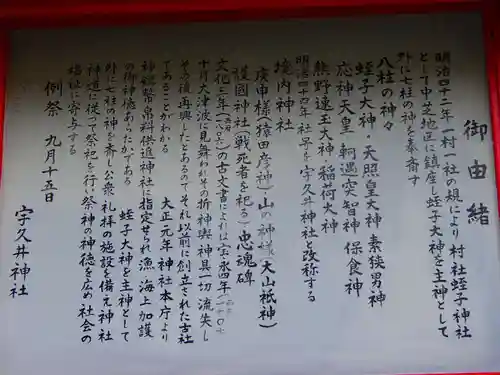 御由緒
明治四十二年一村一社の規により 村社蛭子神社
として中芝地区に鎮座し蛭子大神を主神として
外に七柱の神を奏斎す
八柱の神々
蛭子大神・天照皇大神 素狭男神
応神天皇 軻遇突智神 保食神
熊野速玉大神 稲荷大神
明治四十四年 社号を宇久井神社と改称する
境内神社
庚申様(猿田彦神)山の神様(大山祇神)
護國神社(戦死者を祀る)忠魂碑
文化三年(一八〇六)の古文書によれば宝永四年(一七〇七)
十月大津波に見舞われその折神輿 神具一切 流失し
その後再興したとあるのでそれ以前に創立された古社
であることがわかる 大正元年 神社本庁より
神饌幣帛料供進神社に指定せられ漁、海上加護
の御神徳あらたかである 蛭子大神を主神として
外に七柱の神を斎し公衆 礼拝の施設を備え神社
神道に従って祭祀を行い祭神の神徳を広め 社会の
福祉に寄与する
例祭 九月十五日
宇久井神社